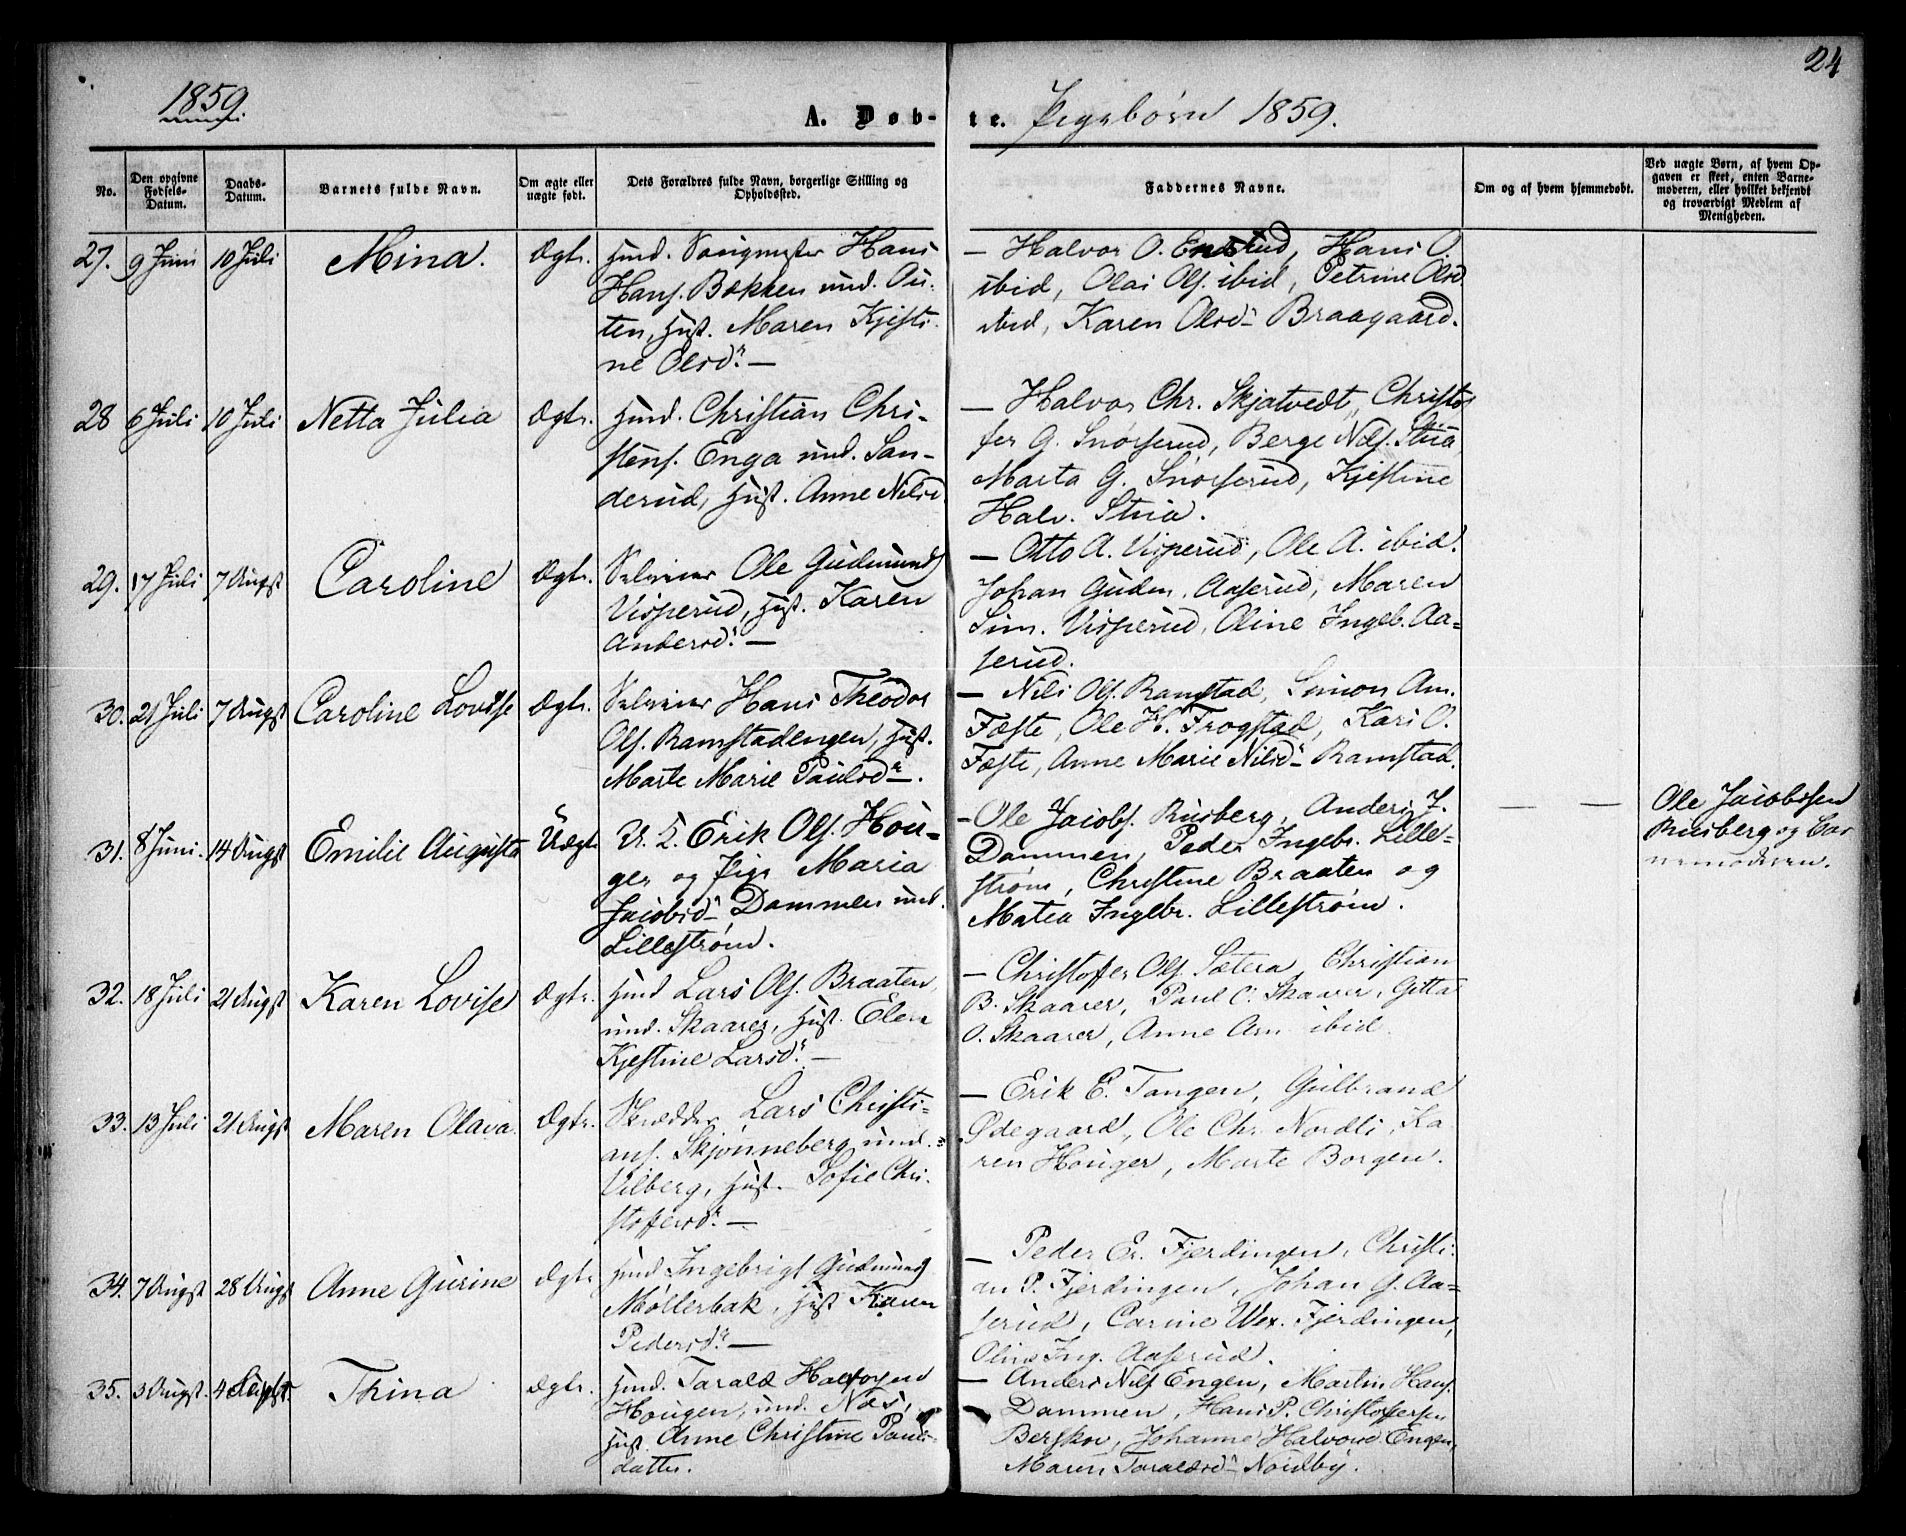 24
1859.
A. Døb-
te. Pigebørn 1859.
No.
Den opgivne Fødsels-Datum.
Daabs-Datum.
Barnets fulde Navn.
Om ægte eller uægte født.
Dets Forældres fulde Navn, borgerlige Stilling og Opholdssted.
Faddernes Navne.
Om og af hvem hjemmedøbt.
Ved uægte Børn, af hvem Opgaven er skeet, enten Barnemoderen, eller hvilket bekjendt og troværdigt Medlem af Menigheden.
27. 9 Juni 10 Juli Mina. Ægte. Husmd. Hans
Hans. Bækken und. Ou-
ten, Hust. Maren Kjesti-
ne Olsdr. —
— Halvor O. Enstrud, Hans O.
ibid, Olai Ols. ibid, Petrine Olsd
ibid, Karen Olsdr Braagaard.
28 6 Juli 10 Juli Netta Julia Ægte. Husmd. Christian Chri-
stens. Enga und. San-
derud, Hust. Anne Nilsd.
— Halvor Chr. Skjatvedt, Christof
fer G. Snorserud, Berge Nils. Stua,
Marta G. Snorserud, Kjestine
Halv. Stua.
29. 17 Juli 7 Augst Caroline Ægte. Selveier Ole Gudmunds
Visperud, Hust. Karen
Andersdr. —
— Otto A. Visperud, Ole A. ibid.
Johan Gudm. Aaserud, Maren
Sim. Visperud, Oline Ingeb. Aa-
serud.
30. 21 Juli 7 Augst Caroline Lovise Ægte. Selveier Hans Theodor
Ols. Ramstadengen, Hust.
Marte Marie Paulsdr.
— Nils Ols. Ramstad, Simon Am.
Fæste, Ole H. Frogstad, Kari O.
Fæste, Anne Marie Nilsdr Ramstad.
31. 8 Juni. 14 Augst Emilie Augusta Uægte. U. K. Erik Ols. Hou-
ger og Pige Maria
Jacobsdr Dammen und.
Lillestrøm.
— Ole Jacobs. Rusberg, Anders J.
Dammen, Peder Ingebr. Lille-
strøm, Christine Braaten og
Matea Ingebr. Lillestrøm.
— —
Ole Jacobsen
Rusberg og Bar
nemoderen.
32. 18 Juli 21 Augst Karen Lovise Ægte. Husmd Lars Ols. Braaten
und. Skaarer, Hust. Elen
Kjestine Larsdr. —
— Christoffer Ols. Sætera, Christian
B. Skaarer, Paul O. Skaarer, Gitta
O. Skaarer, Anne Am. ibid.
33. 13 Juli 21 Augst Maren Olava. Ægte. Skrædder Lars Christi-
ans. Skjønneberg und.
Vilberg, Hust. Sofie Chri-
stoffersdr. —
— Erik E. Tangen, Gulbrand
Ødegaard, Ole Chr. Nordli, Ka
ren Houger, Marte Borgen.
34. 7 Augst 28 Augst Anne Gurine Ægte Husmd Ingebrigt Gudmunds
Møllerbak, Hust Karen
Pedersdr. —
— Peder Er. Fjerdingen, Christi-
an P. Fjerdingen, Johan G. Aa-
serud, Carine Fjerdingen,
Oline Ing. Aaserud.
35. 3 Augst. 4 Septbr. Thina Ægte. Husmd. Tarald Halvorsen
Hougen, und. Næs,
Hust. Anne Christine Pauls-
datter.
— Anders Nils Engen, Martin Hans.
Dammen, Hans P. Christoffersen
Berskov, Johanne Halvorsd. Engen,
Maren Taraldsdr Nordby.